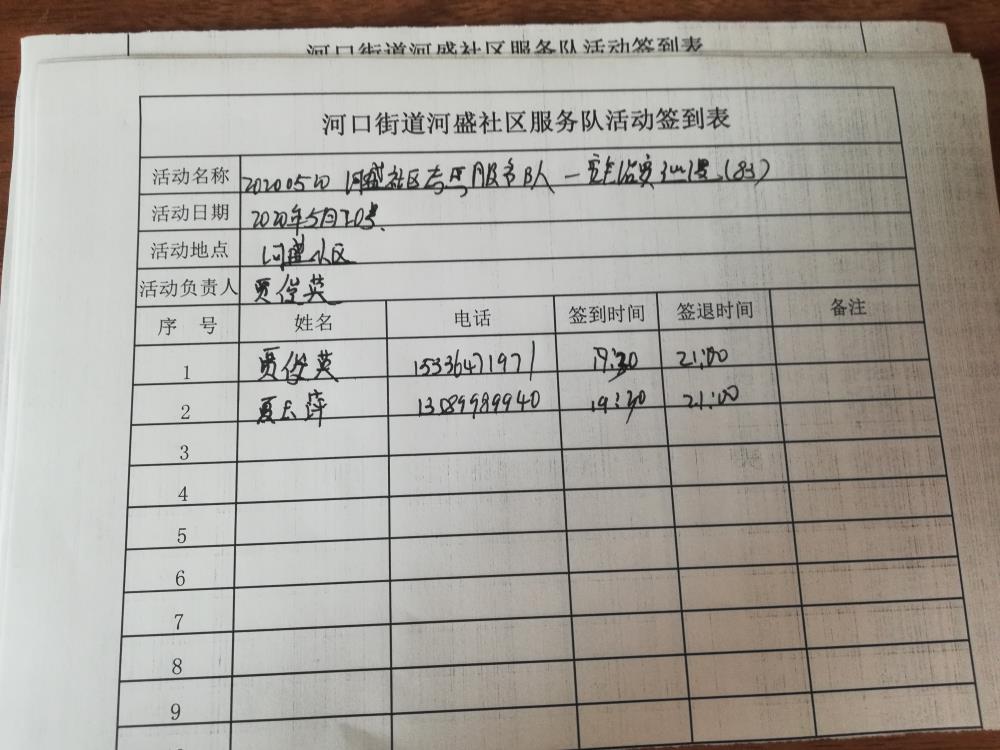 河口街道河盛社区服务队活动签到表
河口街道河盛社区服务队活动签到表
活动名称 20200520 河盛社区 服务队一 (83)
活动日期 2020年5月20号
活动地点 河盛社区
活动负责人 贾俊英
序 号 姓名 电话 签到时间 签退时间 备注
1 贾俊英 15336471971 19:30 21:00
2 夏 萍 13089989940 19:30 21:00
3
4
5
6
7
8
9